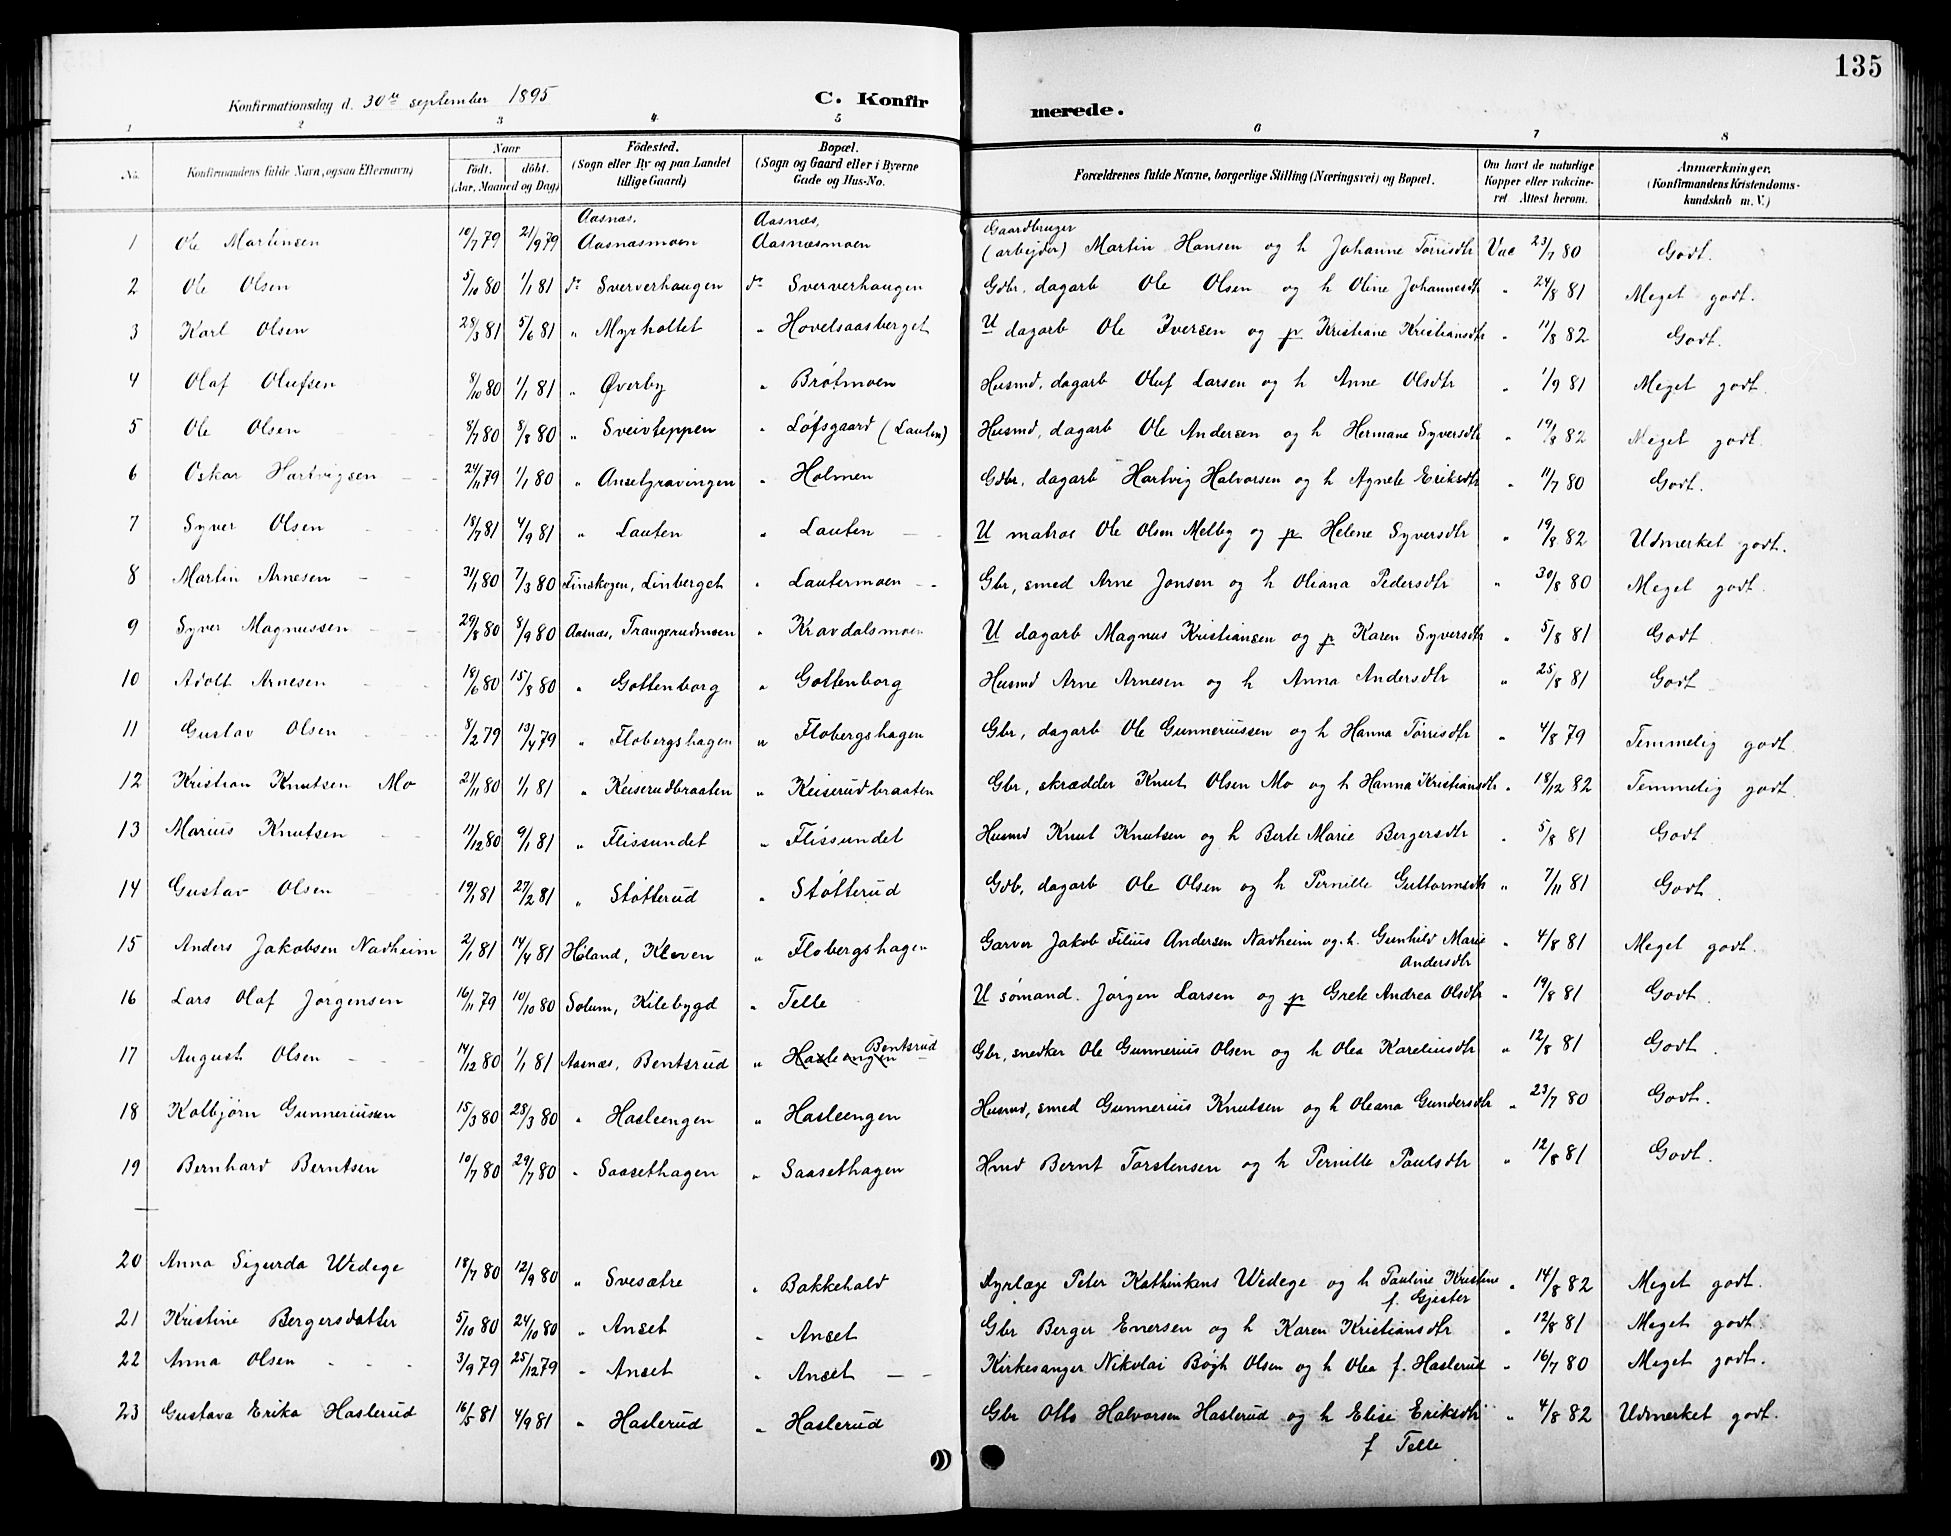 135
Konfirmationsdag d. 30te september 1895 C. Konfir merede.
1 2 3 4 5 6 7 8
No. Konfirmandens fulde Navn, ogsaa Efternavn) Naar født. døbt. (Aar, Maaned og Dag) Fødested. (Sogn eller By og paa Landet tillige Gaard) Bopæl. (Sogn og Gaard eller i Byerne Gade og Hus-No. Forældrenes fulde Navne, borgerlige Stilling (Næringsvei) og Bopæl. Om havt de naturlige Kopper eller vakcineret. Attest herom. Anmærkninger. (Konfirmandens Kristendomskundskab m. V.)
Aasnæs, Aasnæs, Gaardbruger
1 Ole Martinsen 10/7 79 21/9 79 Aasnæsmoen Aasnæsmoen (arbejder) Martin Hansen og h Johanne Tørrisdtr Vac 23/7 80 Godt.
2 Ole Olsen 5/10 80 1/1 81 do Sververhaugen do Sververhaugen Gdbr. dagarb Ole Olsen og h Oline Johannesdtr " 24/8 81 Meget godt.
3 Karl Olsen 28/3 81 5/6 81 " Myrholtet " Hovelsaasberget U dagarb Ole Iversen og p Kristiane Kristiansdtr " 11/8 82 Godt.
4 Olaf Olufsen 8/10 80 1/1 81 " Øverby " Brøtmoen Husmd, dagarb Oluf Larsen og h Anne Olsdtr " 1/9 81 Meget godt.
5 Ole Olsen 8/7 80 8/8 80 " Sveivteppen " Løfsgaard (Lauten) Husmd, dagarb Ole Andersen og h Hermane Syversdtr " 19/8 82 Meget godt.
6 Oskar Hartvigsen 24/11 79 1/1 80 " Ansetgravingen " Holmen Gdbr, dagarb Hartvig Halvorsen og h Agnete Eriksdtr " 11/7 80 Godt.
7 Syver Olsen 18/7 81 4/9 81 " Lauten " Lauten U matros Ole Olsen Melby og p Helene Syversdtr " 19/8 82 Udmerket godt.
8 Martin Arnesen 31/1 80 7/3 80 Finskogen, Linberget " Lautermoen Gbr, smed Arne Jonsen og h Oliana Pedersdtr " 30/8 80 Meget godt.
9 Syver Magnussen 29/8 80 8/9 80 Aasnæs, Trangerudmoen " Kravdalsmoen U dagarb Magnus Kristiansen og p Karen Syversdtr " 5/8 81 Godt
10 Adolf Arnesen 18/6 80 15/8 80 " Gottenborg " Gottenborg Husmd Arne Arnesen og h Anna Andersdtr " 25/8 81 Godt
11 Gustav Olsen 8/2 79 13/4 79 " Flobergshagen " Flobergshagen Gbr, dagarb Ole Gunneriussen og h Hanna Tørrisdtr " 4/8 79 Temmelig godt.
12 Kristian Knutsen Mo 21/11 80 1/1 81 " Keiserudbraaten " Keiserudbraaten Gbr, skrædder Knut Olsen Mo og h Hanna Kristiansdtr " 18/12 82 Temmelig godt.
13 Marius Knutsen 11/12 80 9/1 81 " Flissundet " Flissundet Husmd Knut Knutsen og h Berte Marie Bergersdtr " 5/8 81 Godt
14 Gustav Olsen 19/1 81 27/2 81 " Støtterud " Støtterud Gdb, dagarb Ole Olsen og h Pernille Guttormsdtr " 7/11 81 Godt.
15 Anders Jakobsen Nadheim 2/1 81 14/4 81 Høland, Kleven " Flobergshagen Garver Jakob Filius Andersen Nadheim og h. Gunhild Marie " 4/8 81 Meget godt.
Andersdtr
16 Lars Olaf Jørgensen 16/11 79 10/10 80 Solum, Kilebygd " Telle U sømand. Jørgen Larsen og p Grete Andrea Olsdtr " 19/8 81 Godt.
Bentsrud
17 August Olsen 14/12 80 1/1 81 Aasnæs, Bentsrud " Hasleengen Gbr, snedker Ole Gunnerius Olsen og h Olea Kareliusdtr " 12/8 81 Godt.
18 Kolbjørn Gunneriussen 15/3 80 28/3 80 " Hasleengen " Hasleengen Husmd, smed Gunnerius Knutsen og h Oleana Gundersdtr " 23/7 80 Godt.
19 Bernhard Berntsen 10/7 80 29/7 80 " Saasethagen " Saasethagen Hmd Bernt Torstensen og h Pernille Paulsdtr " 12/8 81 Godt.
20 Anna Sigurda Wedege 18/7 80 12/9 80 " Svesætre " Bakkehald Dyrlæge Peter Kathinkens Wedege og h Pauline Kristine " 14/8 82 Meget godt.
f. Gjester
21 Kristine Bergersdatter 5/10 80 24/10 80 " Anset " Anset Gbr Berger Enersen og h Karen Kristiansdtr " 12/8 81 Meget godt.
22 Anna Olsen 3/9 79 25/12 79 " Anset " Anset Kirkesanger Nikolai Bøgh Olsen og h Olea f. Haslerud " 16/7 80 Meget godt.
23 Gustava Erika Haslerud 16/5 81 4/9 81 " Haslerud " Haslerud Gbr Otto Halvorsen Haslerud og h Elise Eriksdtr " 4/8 82 Udmerket godt.
f Telle